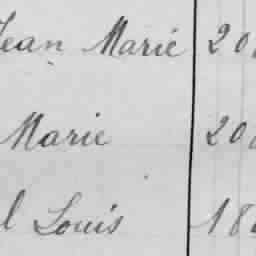 Jean Marie 20
Marie 20
l Louis 18